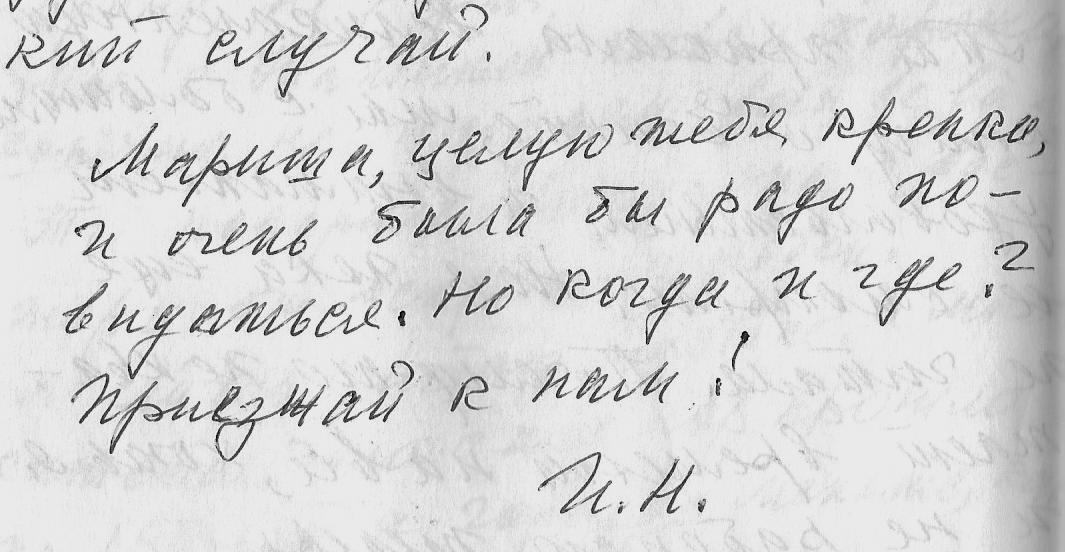 кий случай.
Мариша, целую тебя крепко,
и очень была бы рада по-
видаться. Но когда и где?
Приезжай к нам!
И.Н.